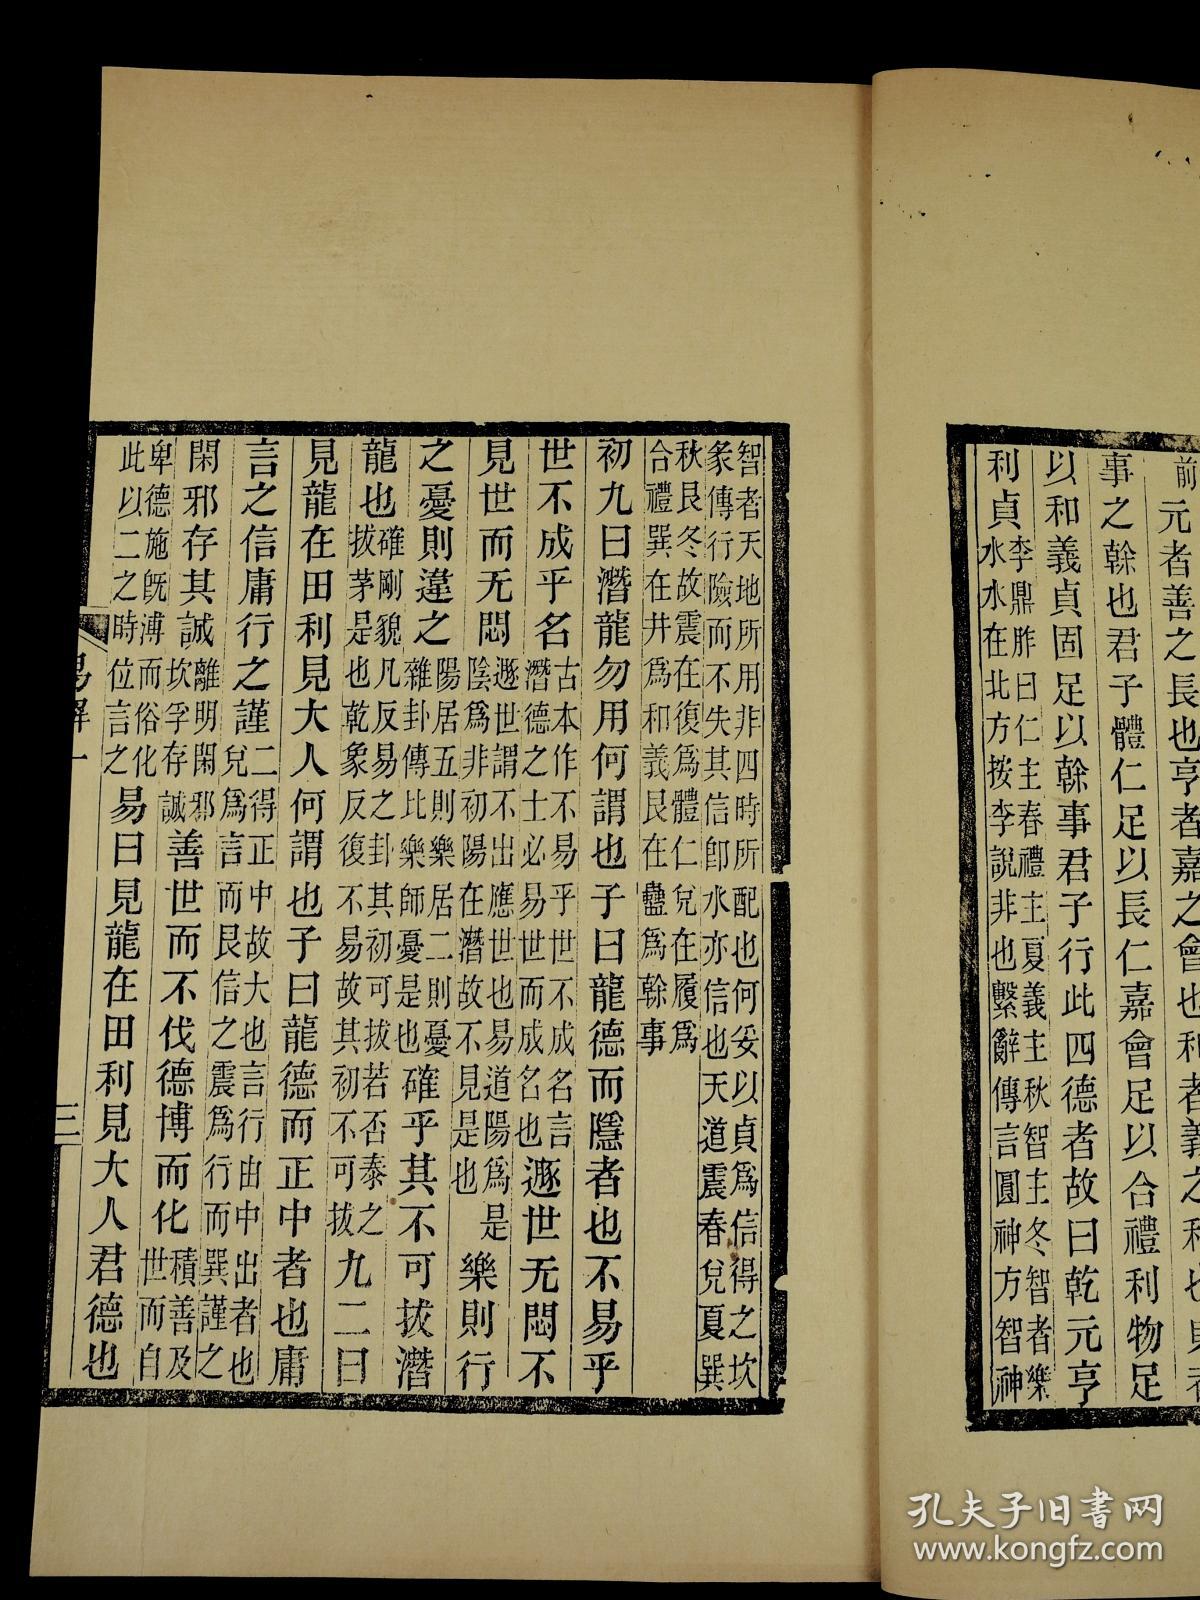 前元者善之長也亨者嘉之會也利者義之和也貞者
事之榦也君子體仁足以長仁嘉會足以合禮利物足
以和義貞固足以榦事君子行此四德者故曰乾元亨
利貞
李鼎祚曰仁主春禮主夏義主秋智主冬智者樂
水水在北方按李說非也繫辭傳言圓神方智神
智者天地所用非四時所配也何妥以貞爲信得之坎
象傳行險而不失其信卽水亦信也天道震春兌夏巽
秋艮冬故震在復爲體仁兌在履爲
合禮巽在井爲和義艮在蠱爲榦事
初九曰潛龍勿用何謂也子曰龍德而隱者也不易乎
世不成乎名
古本作不易乎世不成名言
潛德之士必易世而成名也
遯世无悶不
見世而无悶
遯世謂不出應世也易道陽爲是
陰爲非初陽在潛故不見是也
樂則行
之憂則違之
陽居五則樂居二則憂
雜卦傳比樂師憂是也
確乎其不可拔潛
龍也
確剛貌凡反易之卦其初可拔若否泰之
拔茅是也乾象反復不易故其初不可拔
九二曰
見龍在田利見大人何謂也子曰龍德而正中者也庸
言之信庸行之謹
二得正中故大也言行由中出者也
兌爲言而艮信之震爲行而巽謹之
閑邪存其誠
離明閑邪
坎孚存誠
善世而不伐德博而化
積善及
世而自
卑德施旣溥而俗化
此以二之時位言之
易曰見龍在田利見大人君德也
易解一
三
孔夫子旧書网
www.kongfz.com